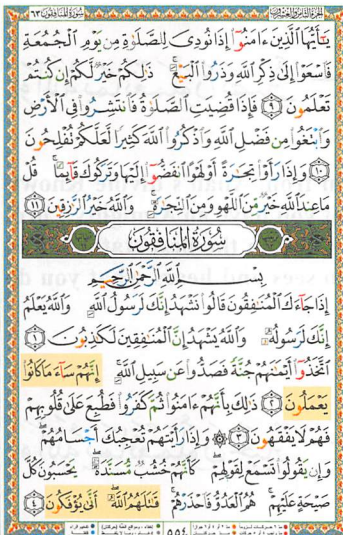 سُورَةُ المُنَافِقُونَ ٦٣
يَٰٓأَيُّهَا ٱلَّذِينَ ءَامَنُوٓا۟ إِذَا نُودِىَ لِلصَّلَوٰةِ مِن يَوْمِ ٱلْجُمُعَةِ
فَٱسْعَوْا۟ إِلَىٰ ذِكْرِ ٱللَّهِ وَذَرُوا۟ ٱلْبَيْعَ ۚ ذَٰلِكُمْ خَيْرٌ لَّكُمْ إِن كُنتُمْ
تَعْلَمُونَ ٩ فَإِذَا قُضِيَتِ ٱلصَّلَوٰةُ فَٱنتَشِرُوا۟ فِى ٱلْأَرْضِ
وَٱبْتَغُوا۟ مِن فَضْلِ ٱللَّهِ وَٱذْكُرُوا۟ ٱللَّهَ كَثِيرًا لَّعَلَّكُمْ تُفْلِحُونَ
١٠ وَإِذَا رَأَوْا۟ تِجَٰرَةً أَوْ لَهْوًا ٱنفَضُّوٓا۟ إِلَيْهَا وَتَرَكُوكَ قَآئِمًا ۚ قُلْ
مَا عِندَ ٱللَّهِ خَيْرٌ مِّنَ ٱللَّهْوِ وَمِنَ ٱلتِّجَٰرَةِ ۚ وَٱللَّهُ خَيْرُ ٱلرَّٰزِقِينَ ١١
سُورَةُ المُنَافِقُونَ
بِسْمِ ٱللَّهِ ٱلرَّحْمَٰنِ ٱلرَّحِيمِ
إِذَا جَآءَكَ ٱلْمُنَٰفِقُونَ قَالُوا۟ نَشْهَدُ إِنَّكَ لَرَسُولُ ٱللَّهِ ۗ وَٱللَّهُ يَعْلَمُ
إِنَّكَ لَرَسُولُهُۥ وَٱللَّهُ يَشْهَدُ إِنَّ ٱلْمُنَٰفِقِينَ لَكَٰذِبُونَ ١
ٱتَّخَذُوٓا۟ أَيْمَٰنَهُمْ جُنَّةً فَصَدُّوا۟ عَن سَبِيلِ ٱللَّهِ ۚ إِنَّهُمْ سَآءَ مَا كَانُوا۟
يَعْمَلُونَ ٢ ذَٰلِكَ بِأَنَّهُمْ ءَامَنُوا۟ ثُمَّ كَفَرُوا۟ فَطُبِعَ عَلَىٰ قُلُوبِهِمْ
فَهُمْ لَا يَفْقَهُونَ ٣ ۞ وَإِذَا رَأَيْتَهُمْ تُعْجِبُكَ أَجْسَامُهُمْ ۖ
وَإِن يَقُولُوا۟ تَسْمَعْ لِقَوْلِهِمْ ۖ كَأَنَّهُمْ خُشُبٌ مُّسَنَّدَةٌ ۖ يَحْسَبُونَ كُلَّ
صَيْحَةٍ عَلَيْهِمْ ۚ هُمُ ٱلْعَدُوُّ فَٱحْذَرْهُمْ ۚ قَٰتَلَهُمُ ٱللَّهُ ۖ أَنَّىٰ يُؤْفَكُونَ ٤
٥٥٤